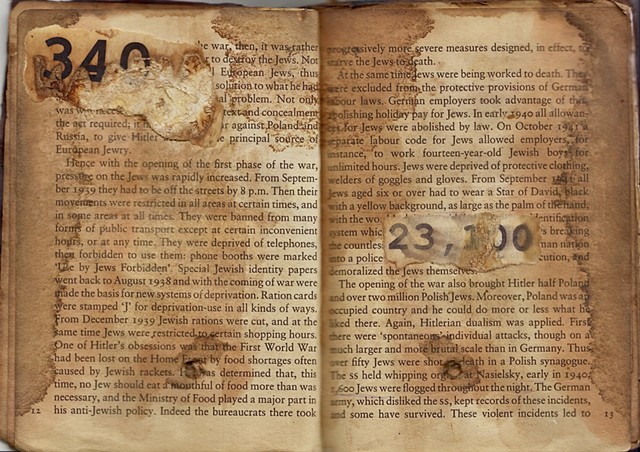 340
he war, then, it was rather
to destroy the Jews. Not
European Jews, thus
solution to what he had
al problem. Not only
text and concealment
the act required; it
war against Poland and
Russia, to give Hitler
e principal source of
European Jewry.
Hence with the opening of the first phase of the war,
pressure on the Jews was rapidly increased. From Septem-
ber 1939 they had to be off the streets by 8 p.m. Then their
movements were restricted in all areas at certain times, and
in some areas at all times. They were banned from many
forms of public transport except at certain inconvenient
hours, or at any time. They were deprived of telephones,
then forbidden to use them: phone booths were marked
'Use by Jews Forbidden'. Special Jewish identity papers
went back to August 1938 and with the coming of war were
made the basis for new systems of deprivation. Ration cards
were stamped 'J' for deprivation-use in all kinds of ways.
From December 1939 Jewish rations were cut, and at the
same time Jews were restricted to certain shopping hours.
One of Hitler's obsessions was that the First World War
had been lost on the Home Front by food shortages often
caused by Jewish rackets. It was determined that, this
time, no Jew should eat a mouthful of food more than was
necessary, and the Ministry of Food played a major part in
his anti-Jewish policy. Indeed the bureaucrats there took
12
progressively more severe measures designed, in effect, to
starve the Jews to death.
At the same time Jews were being worked to death. They
were excluded from the protective provisions of German
labour laws. German employers took advantage of this,
abolishing holiday pay for Jews. In early 1940 all allowan-
ces for Jews were abolished by law. On October 1941 a
separate labour code for Jews allowed employers, for
instance, to work fourteen-year-old Jewish boys for
unlimited hours. Jews were deprived of protective clothing,
welders of goggles and gloves. From September 1941 all
Jews aged six or over had to wear a Star of David, black
with a yellow background, as large as the palm of the hand,
with the wo
identification
system which
breaking
the countless
man nation
into a police
cution, and
demoralized the Jews themselves.
23,100
The opening of the war also brought Hitler half Poland
and over two million Polish Jews. Moreover, Poland was an
occupied country and he could do more or less what he
liked there. Again, Hitlerian dualism was applied. First
there were 'spontaneous' individual attacks, though on a
much larger and more brutal scale than in Germany. Thus
over fifty Jews were shot to death in a Polish synagogue.
The SS held whipping orgies at Nasielsky, early in 1940
1,600 Jews were flogged throughout the night. The German
army, which disliked the SS, kept records of these incidents,
and some have survived. These violent incidents led to
13